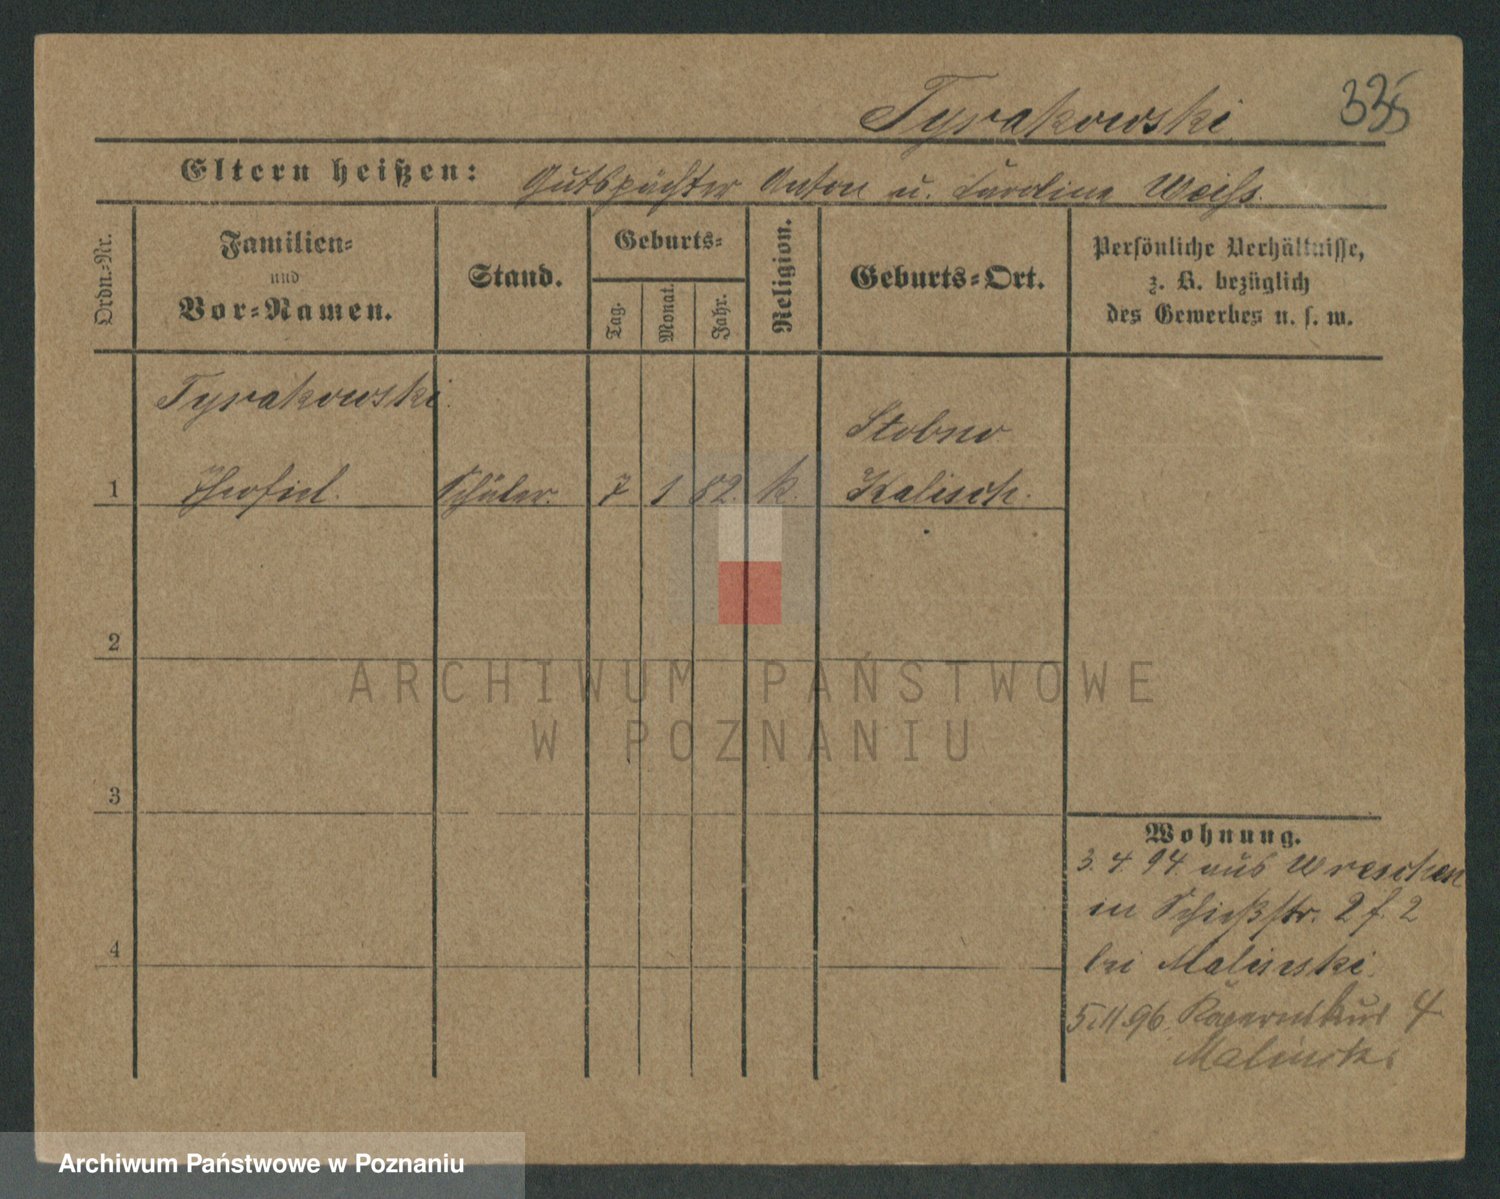 Tyrakowski 335
Eltern heißen: Gutspächter Anton u. Carolina Weiss.
Ordn.-Nr.
Familien-
und
Vor-Namen.
Stand.
Geburts-
Tag.
Monat.
Jahr.
Religion.
Geburts-Ort.
Persönliche Verhältnisse,
z. B. bezüglich
des Gewerbes u. s. w.
Tyrakowski.
Stobno
1 Schüler. 7 1 82. k. Kalisch.
2
3
4
Wohnung.
3. 4. 94. aus Wreschen
in Schießstr. 2 f. 2
bei Malinski.
5.11.96. 4
Malinski
ARCHIWUM PAŃSTWOWE
W POZNANIU
Archiwum Państwowe w Poznaniu